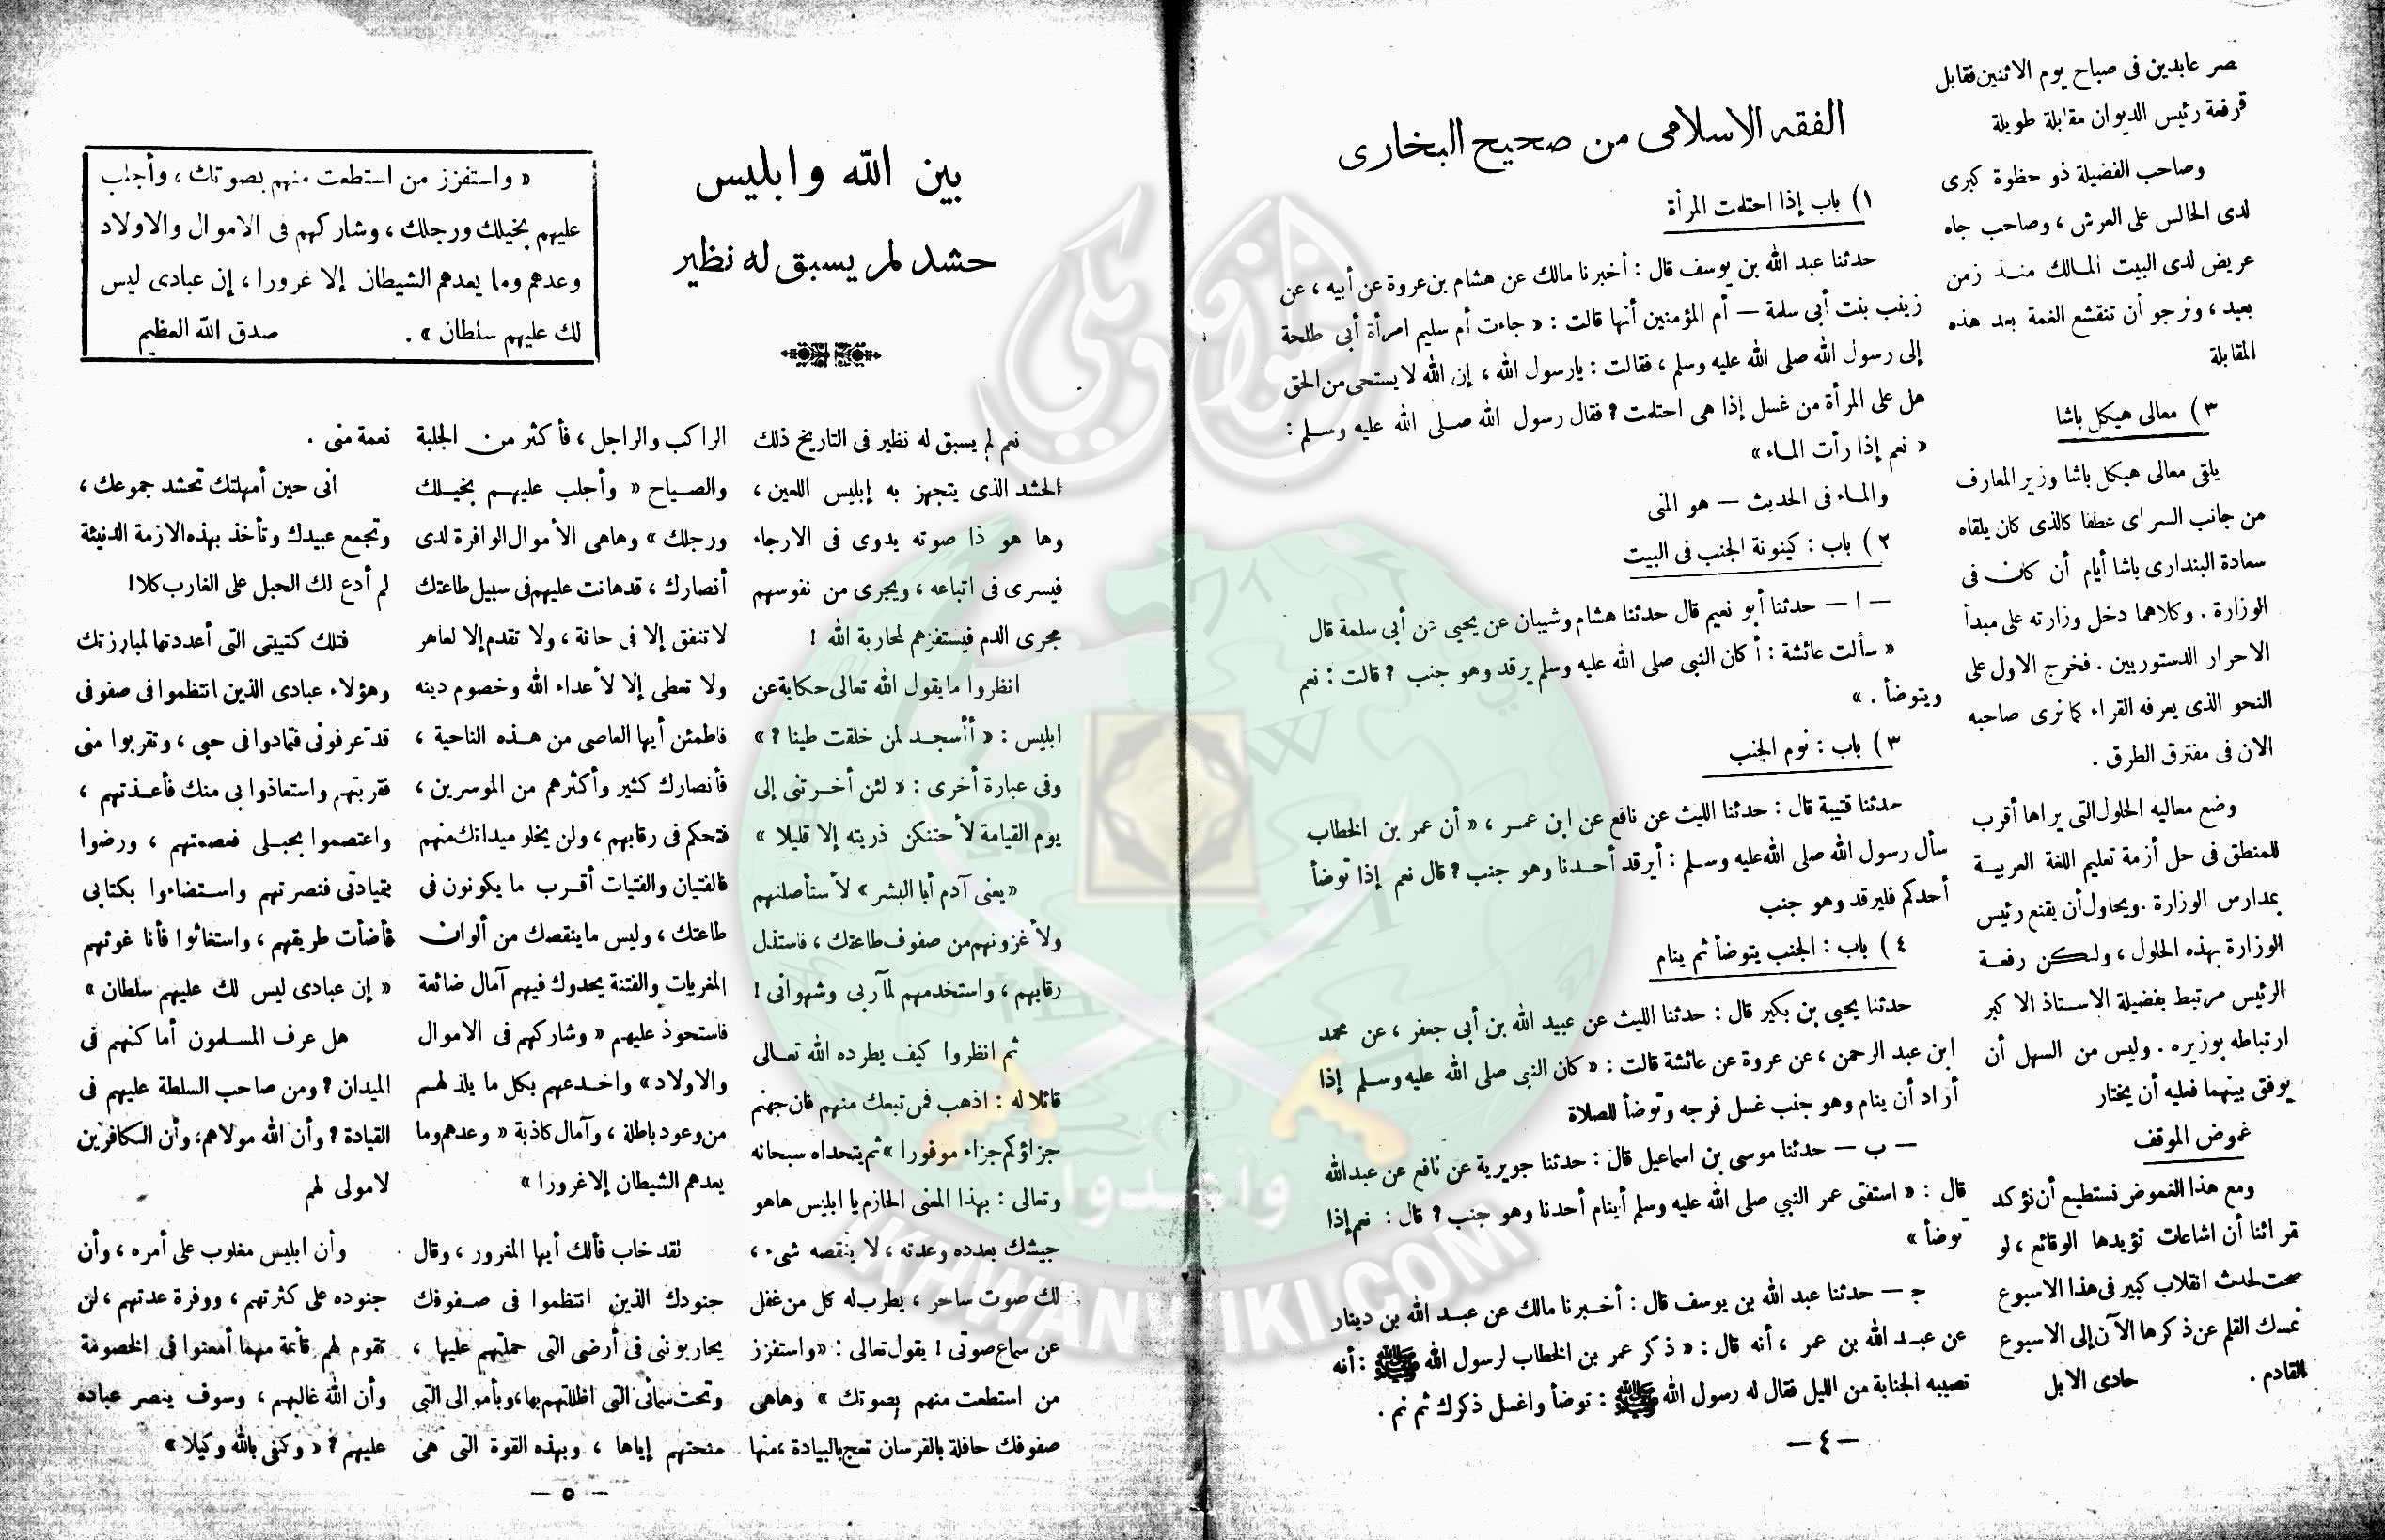 صر عابدين فى صباح يوم الاثنين فقابل
رفعة رئيس الديوان مقابلة طويلة
وصاحب الفضيلة ذو حظوة كبرى
لدى الجالس على العرش ، وصاحب جاه
عريض لدى البيت المالك منذ زمن
بعيد ، ونرجو أن تنقشع الغمة بعد هذه
المقابلة
٣ ) معالى هيكل باشا
يلقى معالى هيكل باشا وزير المعارف
من جانب السراى عطفا كالذى كان يلقاه
سعادة البندارى باشا أيام أن كان فى
الوزارة . وكلاهما دخل وزارته على مبدأ
الاحرار الدستوريين . فخرج الاول على
النحو الذى يعرفه القراء كما نرى صاحبه
الان فى مفترق الطرق .
وضع معاليه الحلول التى يراها أقرب
للمنطق فى حل أزمة تعليم اللغة العربية
بمدارس الوزارة . ويحاول أن يقنع رئيس
الوزارة بهذه الحلول ، ولكن رفعة
الرئيس مرتبط بفضيلة الاستاذ الاكبر
ارتباطه بوزيره . وليس من السهل أن
يوفق بينهما فعليه أن يختار
غموض الموقف
ومع هذا الغموض نستطيع أن نؤكد
قرائنا أن اشاعات تؤيدها الوقائع ، لو
صحت لحدث انقلاب كبير فى هذا الاسبوع
نمسك القلم عن ذكرها الآن إلى الاسبوع
القادم . حادى الابل
الفقه الاسلامى من صحيح البخارى
١) باب إذا احتلمت المرأة
حدثنا عبد الله بن يوسف قال : أخبرنا مالك عن هشام بن عروة عن أبيه ، عن
زينب بنت أبى سلمة — أم المؤمنين أنها قالت : « جاءت أم سليم امرأة أبى طلحة
إلى رسول الله صلى الله عليه وسلم ، فقالت : يارسول الله ، إن الله لا يستحى من الحق
هل على المرأة من غسل إذا هى احتلمت ؟ فقال رسول الله صلى الله عليه وسلم :
« نعم إذا رأت الماء »
والماء فى الحديث — هو المنى
٢ ) باب : كينونة الجنب فى البيت
— ا — حدثنا أبو نعيم قال حدثنا هشام وشيبان عن يحيى عن أبى سلمة قال
« سألت عائشة : أكان النبى صلى الله عليه وسلم يرقد وهو جنب ؟ قالت : نعم
ويتوضأ . »
٣ ) باب : نوم الجنب
حدثنا قتيبة قال : حدثنا الليث عن نافع عن ابن عمر ، « أن عمر بن الخطاب
سأل رسول الله صلى الله عليه وسلم : أيرقد أحدنا وهو جنب ؟ قال نعم إذا توضأ
أحدكم فليرقد وهو جنب
٤ ) باب : الجنب يتوضأ ثم ينام
حدثنا يحيى بن بكير قال : حدثنا الليث عن عبيد الله بن أبى جعفر ، عن محمد
ابن عبد الرحمن ، عن عروة عن عائشة قالت : « كان النبى صلى الله عليه وسلم إذا
أراد أن ينام وهو جنب غسل فرجه وتوضأ للصلاة
— ب — حدثنا موسى بن اسماعيل قال : حدثنا جويرية عن نافع عن عبدالله
قال : « استفتى عمر النبي صلى الله عليه وسلم أينام أحدنا وهو جنب ؟ قال : نعم إذا
توضأ »
ج — حدثنا عبد الله بن يوسف قال : أخبرنا مالك عن عبد الله بن دينار
عن عبد الله بن عمر ، أنه قال : « ذكر عمر بن الخطاب لرسول الله ﷺ : أنه
تصيبه الجنابة من الليل فقال له رسول الله ﷺ : توضأ واغسل ذكرك ثم نم .
— ٤ —
بين الله وابليس
حشد لم يسبق له نظير
« واستفزز من استطعت منهم بصوتك ، وأجلب
عليهم بخيلك ورجلك ، وشاركهم فى الاموال والاولاد
وعدهم وما يعدهم الشيطان إلا غرورا ، إن عبادى ليس
لك عليهم سلطان » . صدق الله العظيم
نعم لم يسبق له نظير فى التاريخ ذلك
الحشد الذى يتجهز به إبليس اللعين ،
وها هو ذا صوته يدوى فى الارجاء
فيسرى فى اتباعه ، ويجرى من نفوسهم
مجرى الدم فيستفزهم لمحاربة الله !
انظروا ما يقول الله تعالى حكاية عن
ابليس : « أأسجد لمن خلقت طينا ؟ »
وفى عبارة أخرى : « لئن أخرتنى إلى
يوم القيامة لأحتنكن ذريته إلا قليلا »
« يعنى آدم أبا البشر » لأستأصلنهم
ولأغزونهم من صفوف طاعتك ، فاستذل
رقابهم ، واستخدمهم لمآربى وشهواتى !
ثم انظروا كيف يطرده الله تعالى
قائلا له : اذهب فمن تبعك منهم فان جهنم
جزاؤكم جزاء موفورا » ثم يتحداه سبحانه
وتعالى : بهذا المعنى الحازم يا ابليس هاهو
جيشك بعدده وعدته ، لا ينقصه شىء ،
لك صوت ساحر ، يطرب له كل من غفل
عن سماع صوتى ! يقول تعالى : « واستفزز
من استطعت منهم بصوتك » وهاهى
صفوفك حافلة بالفرسان تعج بالبيادة ، منها
الراكب والراجل ، فأكثر من الجلبة
والصياح « وأجلب عليهم بخيلك
ورجلك » وهاهى الأموال الوافرة لدى
أنصارك ، قد هانت عليهم فى سبيل طاعتك
لا تنفق إلا فى حانة ، ولا تقدم إلا لعاهر
ولا تعطى إلا لأعداء الله وخصوم دينه
فاطمئن أيها العاصى من هذه الناحية ،
فأنصارك كثير وأكثرهم من الموسرين ،
فتحكم فى رقابهم ، ولن يخلو ميدانك منهم
فالفتيان والفتيات أقرب ما يكونون فى
طاعتك ، وليس ما ينقصك من ألوان
المغريات والفتنة يحدوك فيهم آمال ضائعة
فاستحوذ عليهم « وشاركهم فى الاموال
والاولاد » واخدعهم بكل ما يلذ لهم
من وعود باطلة ، وآمال كاذبة « وعدهم وما
يعدهم الشيطان إلا غرورا »
لقد خاب فألك أيها المغرور ، وقال
جنودك الذين انتظموا فى صفوفك
يحاربوننى فى أرضى التى حملتهم عليها ،
وتحت سمائى التى اظللتهم بها، وبأموالى التى
منحتهم إياها ، وبهذه القوة التى هى
نعمة منى .
انى حين أمهلتك تحشد جموعك ،
وتجمع عبيدك وتأخذ بهذه الازمة الدنيئة
لم أدع لك الحبل على الغارب كلا !
فتلك كتيبتى التى أعددتها لمبارزتك
وهؤلاء عبادى الذين انتظموا فى صفوفى
قد عرفونى فتمادوا فى حبى ، وتقربوا منى
فقربتهم واستعاذوا بى منك فأعذتهم ،
واعتصموا بحبلى فعصمتهم ، ورضوا
بقيادتى فنصرتهم واستضاءوا بكتابى
فأضأت طريقهم ، واستغاثوا فأنا غوثهم
« إن عبادى ليس لك عليهم سلطان »
هل عرف المسلمون أماكنهم فى
الميدان ؟ ومن صاحب السلطة عليهم فى
القيادة ؟ وأن الله مولاهم، وأن الكافرين
لا مولى لهم
وأن ابليس مغلوب على أمره ، وأن
جنوده على كثرتهم ، ووفرة عدتهم ، لن
تقوم لهم قائمة مهما أمعنوا فى الخصومة
وأن الله غالبهم ، وسوف ينصر عباده
عليهم ؟ « وكفى بالله وكيلا »
— ٥ —
إخوان ويكي
وأعدوا
KHWANWIKI.COM